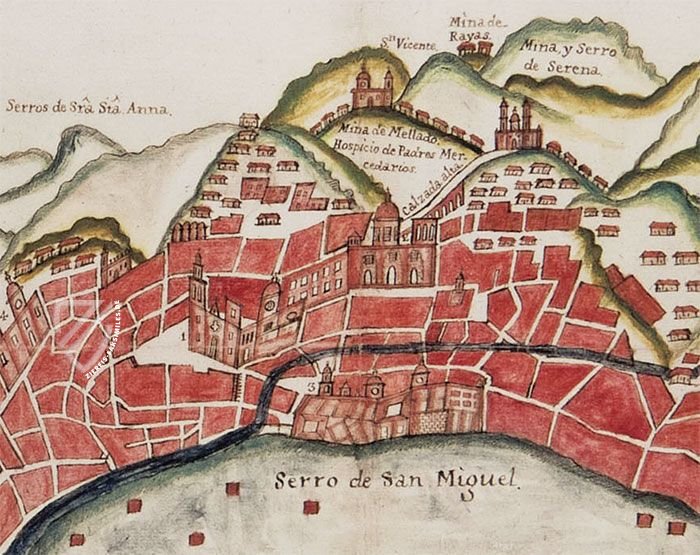 Mina de
Rayas.
Sn Vicente.
Mina, y Serro
de Serena.
Serros de Sra Sta Anna.
Mina de Mellado.
Hospicio de Padres Mer
cedarios.
Calzada alta
1
3
Serro de San Miguel.
ZIEREIS-FACSIMILES.DE